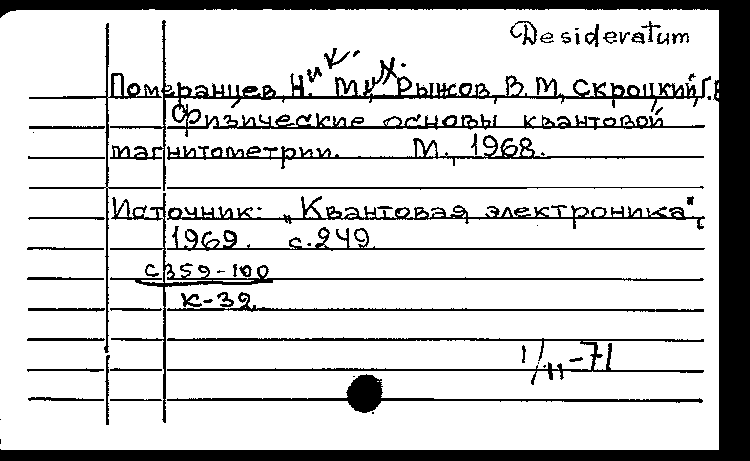 Desideratum
ик. их.
Померанцев, Н. М., Рыжов, В. М, Скроцкий, Г.
Физические основы квантовой
магнитометрии. М., 1968.
Источник: „Квантовая электроника",
1969. с.249
с 359-100
к-32
1/II-71